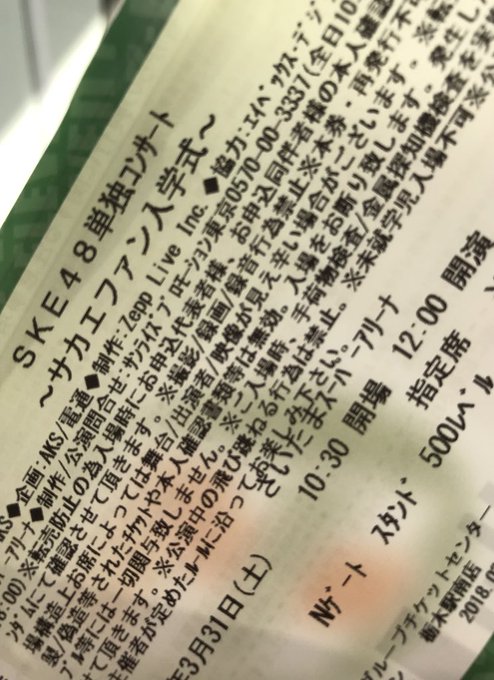 SKE48単独コンサート
～サカエファン入学式～
AKS◆企画:AKS/電通◆制作:Zepp Live Inc.◆協力:エイベックス・デジ
アリーナ◆制作/公演問合せ:サンライズプロモーション東京0570-00-3337(全日10:
18:00)※転売防止の為入場時にお申込代表者様、お申込同伴者様の本人確認
ムにて確認させて頂きます。※撮影/録画/録音行為禁止※本券・再発行不
場構造上お席によっては舞台/出演者/映像が見え辛い場合がございます。※転
製/偽造等されたチケットや本人確認書類等は無効。入場をお断り致します。発生し
ブル等には一切関与致しません。※ご入場時、手荷物検査/金属探知機検査を実
せて頂きます。※公演中の飛び跳ねる行為は禁止。※未就学児入場不可※公
主催者が定めたルールに沿ってお楽しみ下さい。
さいたまスーパーアリーナ
年3月31日(土) 10:30 開場 12:00 開演
指定席
Nゲート スタンド 500レベル
グループチケットセンター
栃木駅南店
2018.0